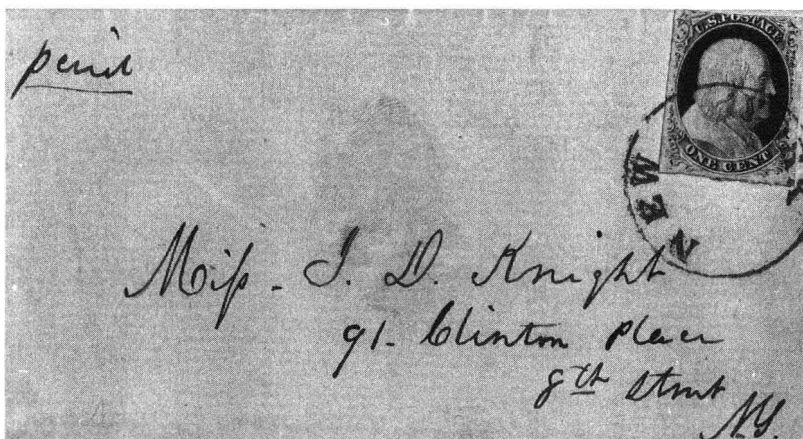 U.S. POSTAGE
ONE CENT
NEW
Miss - J. D. Knight
91- Clinton Place
8th Street
NY.